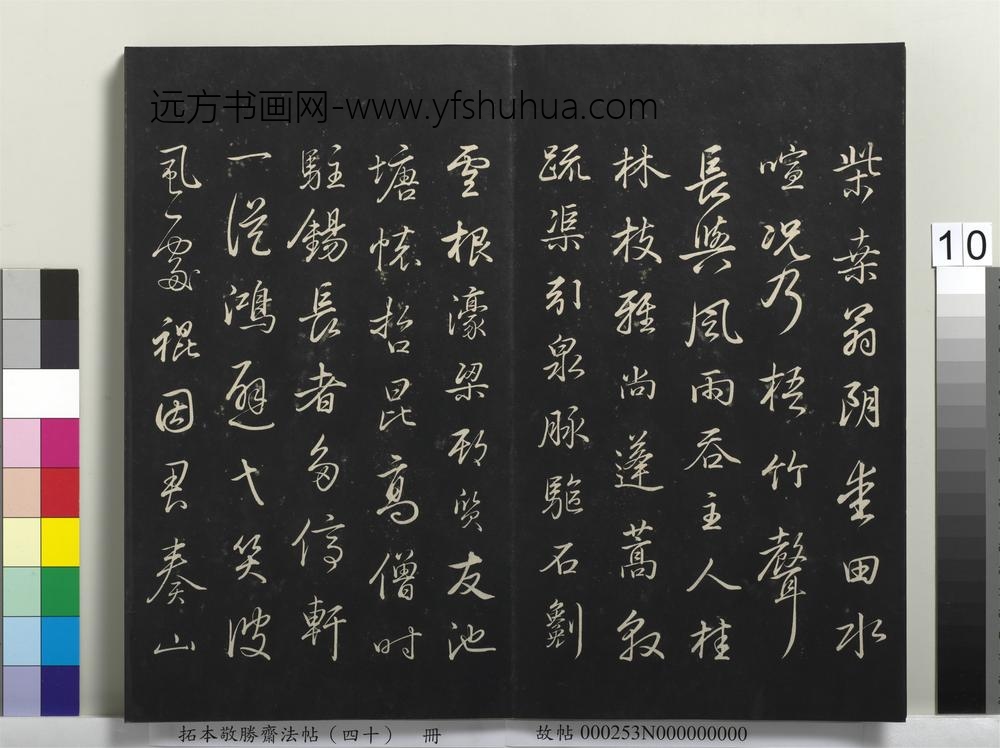 远方书画网-www.yfshuhua.com
柴桒翁愛田水
喧况乃梧竹聲
長與風雨吞主人桂
林枝雅尚蓬蒿叙
疏渠引泉脉驅石劚
雲根濠梁質友池
塘懷哲昆高僧時
駐錫長者多停軒
一從鴻避弋笑彼
虱處裩因君奏山
10
拓本敬勝齋法帖(四十) 冊
故帖 000253N000000000